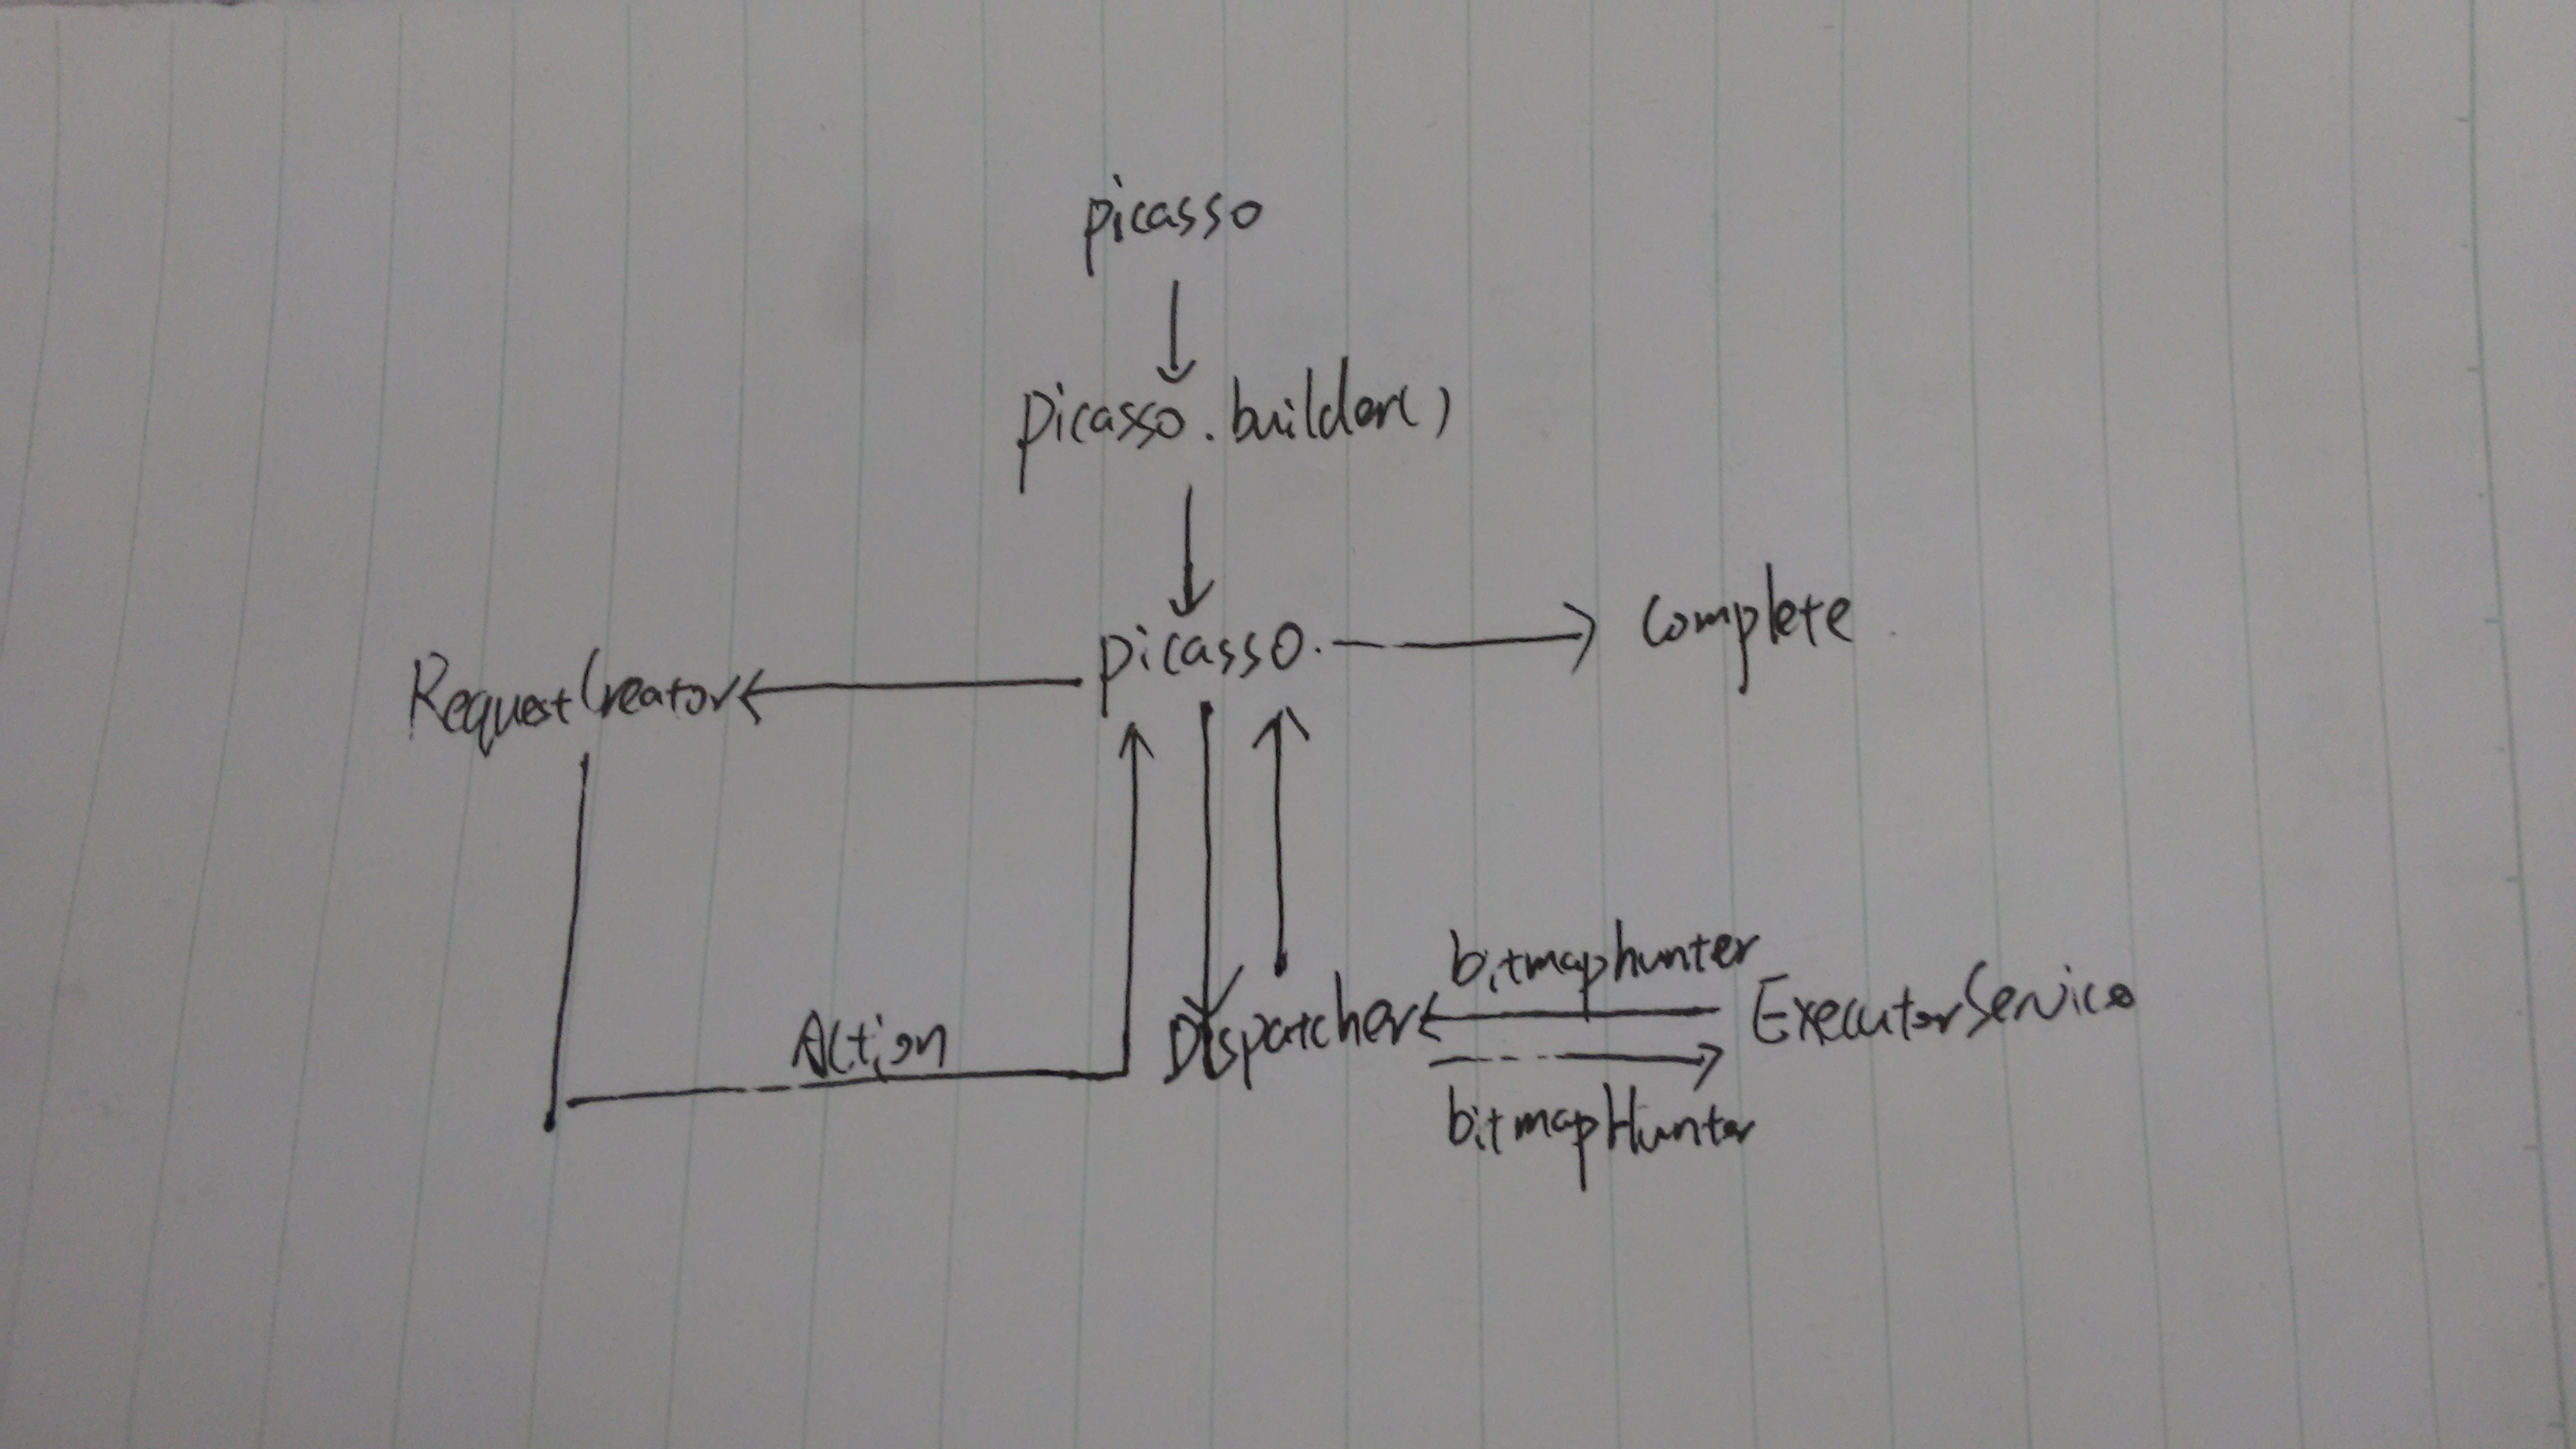 picasso
picasso.builder()
picasso.
complete
RequestCreator
bitmaphunter
Dispatcher
ExecutorService
Action
bitmapHunter